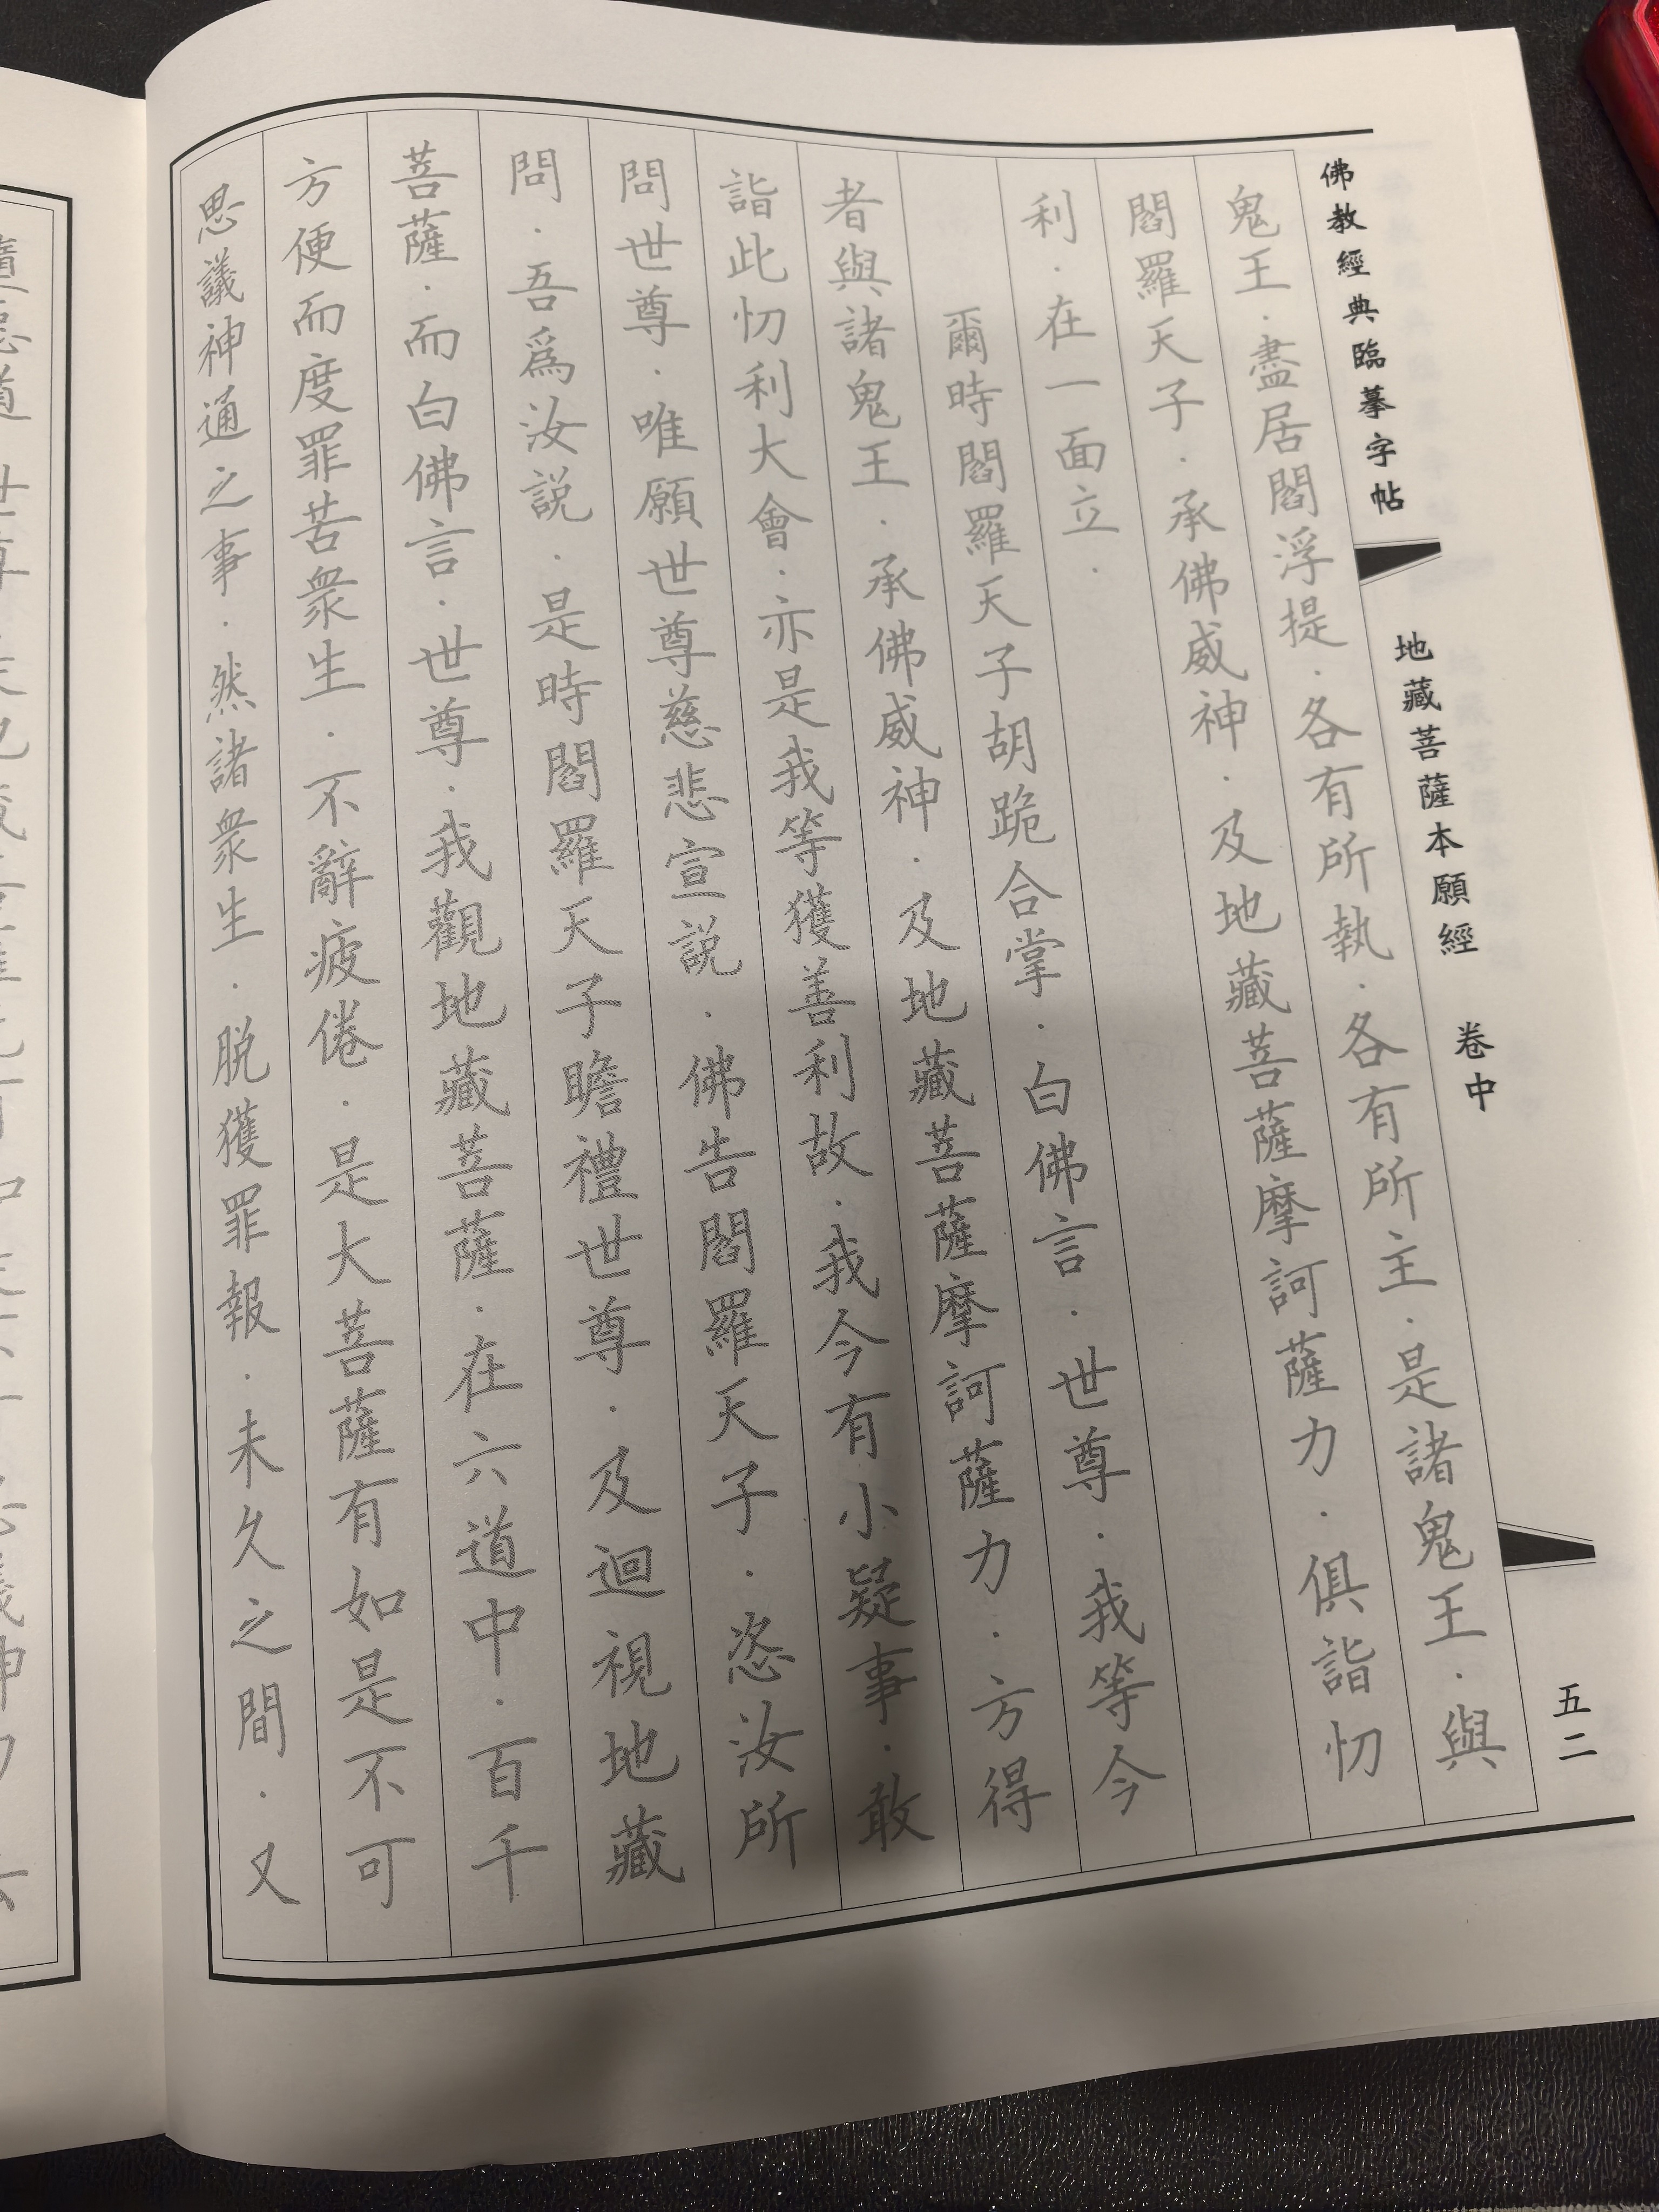 佛教經典臨摹字帖
地藏菩薩本願經 卷中
五二
鬼王．盡居閻浮提．各有所執．各有所主．是諸鬼王．與
閻羅天子．承佛威神．及地藏菩薩摩訶薩力．俱詣忉
利．在一面立．
爾時閻羅天子胡跪合掌．白佛言．世尊．我等今
者與諸鬼王．承佛威神．及地藏菩薩摩訶薩力．方得
詣此忉利大會．亦是我等獲善利故．我今有小疑事．敢
問世尊．唯願世尊慈悲宣説．佛告閻羅天子．恣汝所
問．吾爲汝説．是時閻羅天子瞻禮世尊．及迴視地藏
菩薩．而白佛言．世尊．我觀地藏菩薩．在六道中．百千
方便而度罪苦衆生．不辭疲倦．是大菩薩有如是不可
思議神通之事．然諸衆生．脱獲罪報．未久之間．又